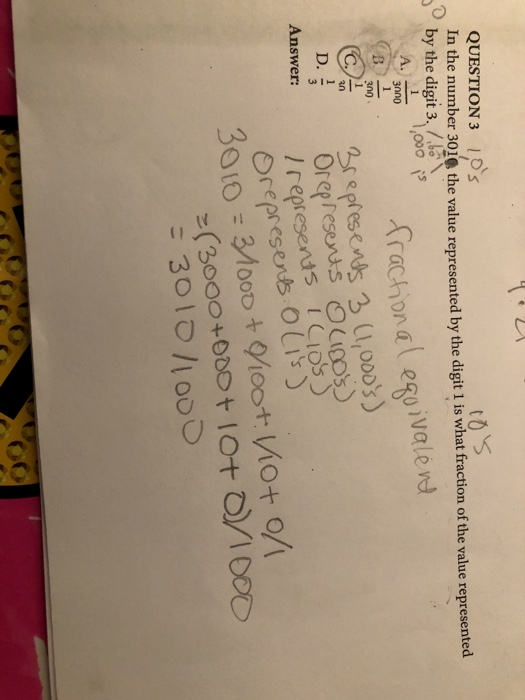 QUESTION 3 10's 10's
In the number 3010, the value represented by the digit 1 is what fraction of the value represented
by the digit 3.
1,000 is
A. 1/3000
B. 1/300
C. 1/30
D. 1/3
Answer:
fractional equivalent
3 represents 3 (1,000's)
0 represents 0 (100's)
1 represents 1 (10's)
0 represents 0 (1's)
3010 = 3/1000 + 0/100 + 1/10 + 0/1
= (3000 + 000 + 10 + 0)/1000
= 3010/1000